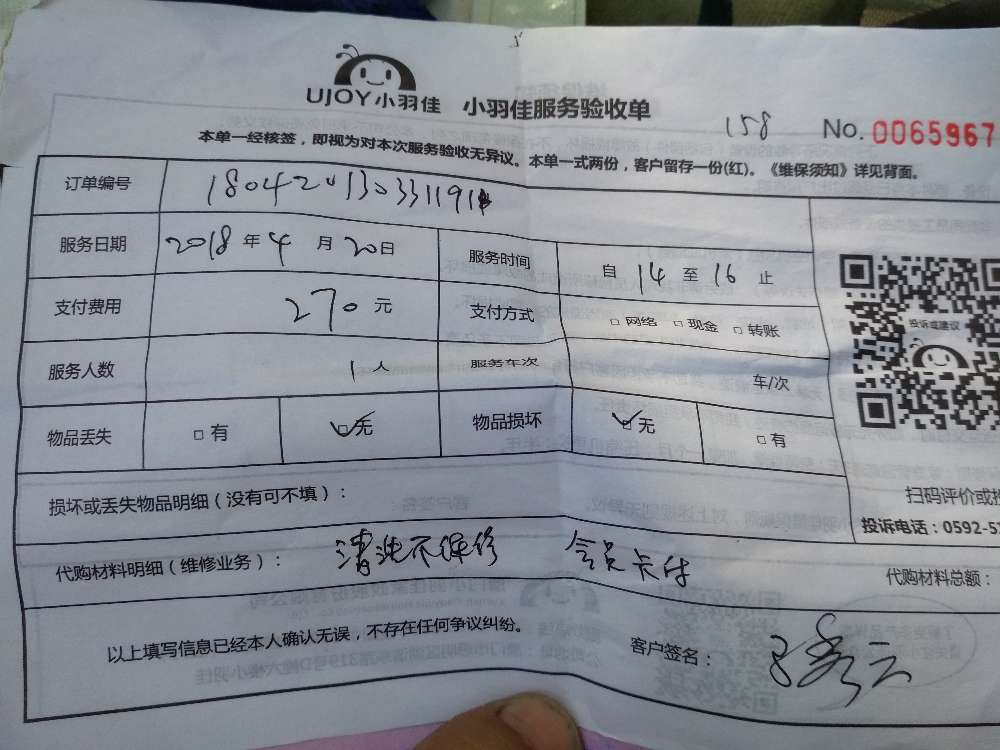 UJOY小羽佳 小羽佳服务验收单
158 No. 0065967
本单一经核签，即视为对本次服务验收无异议。本单一式两份，客户留存一份(红)。《维保须知》详见背面。
订单编号
服务日期 2018年4月20日 服务时间 自14至16止
支付费用 270元 支付方式 □网络 □现金 □转账
投诉或建议
服务人数 1人 服务车次 车/次
物品丢失 □有 ☑无 物品损坏 ☑无 □有
损坏或丢失物品明细（没有可不填）：
扫码评价或投
投诉电话：0592-5
代购材料明细（维修业务）： 清洗不保修 会员卡付
代购材料总额：
以上填写信息已经本人确认无误，不存在任何争议纠纷。
客户签名：